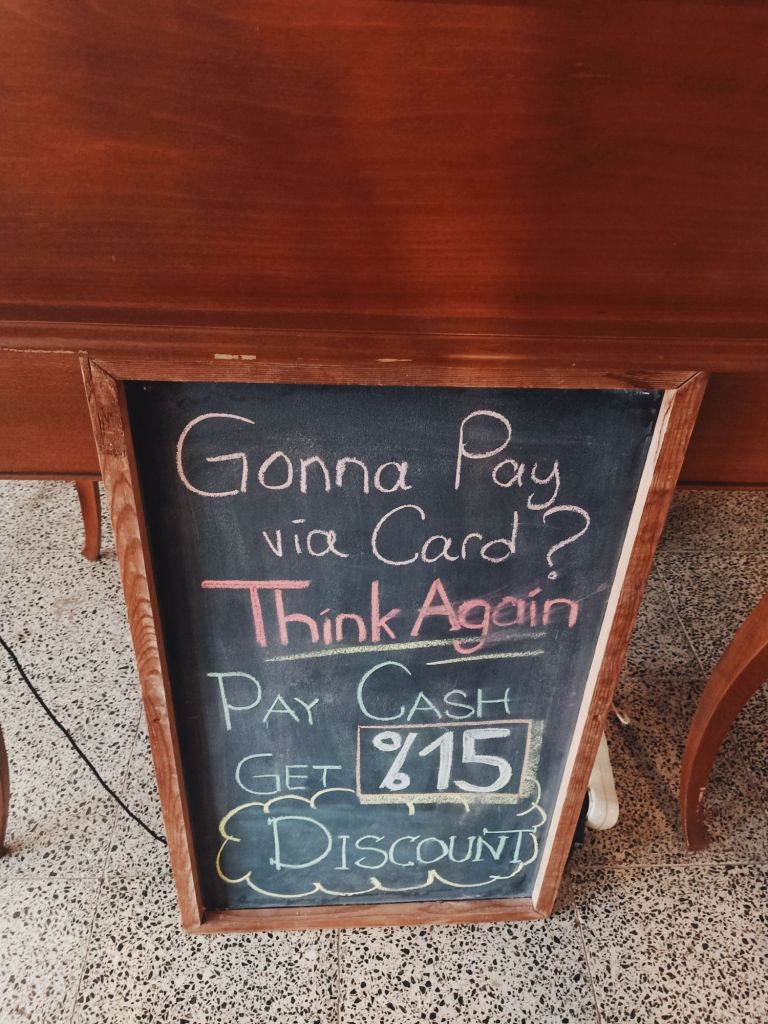 Gonna Pay
via Card?
Think Again
PAY CASH
GET %15
DISCOUNT